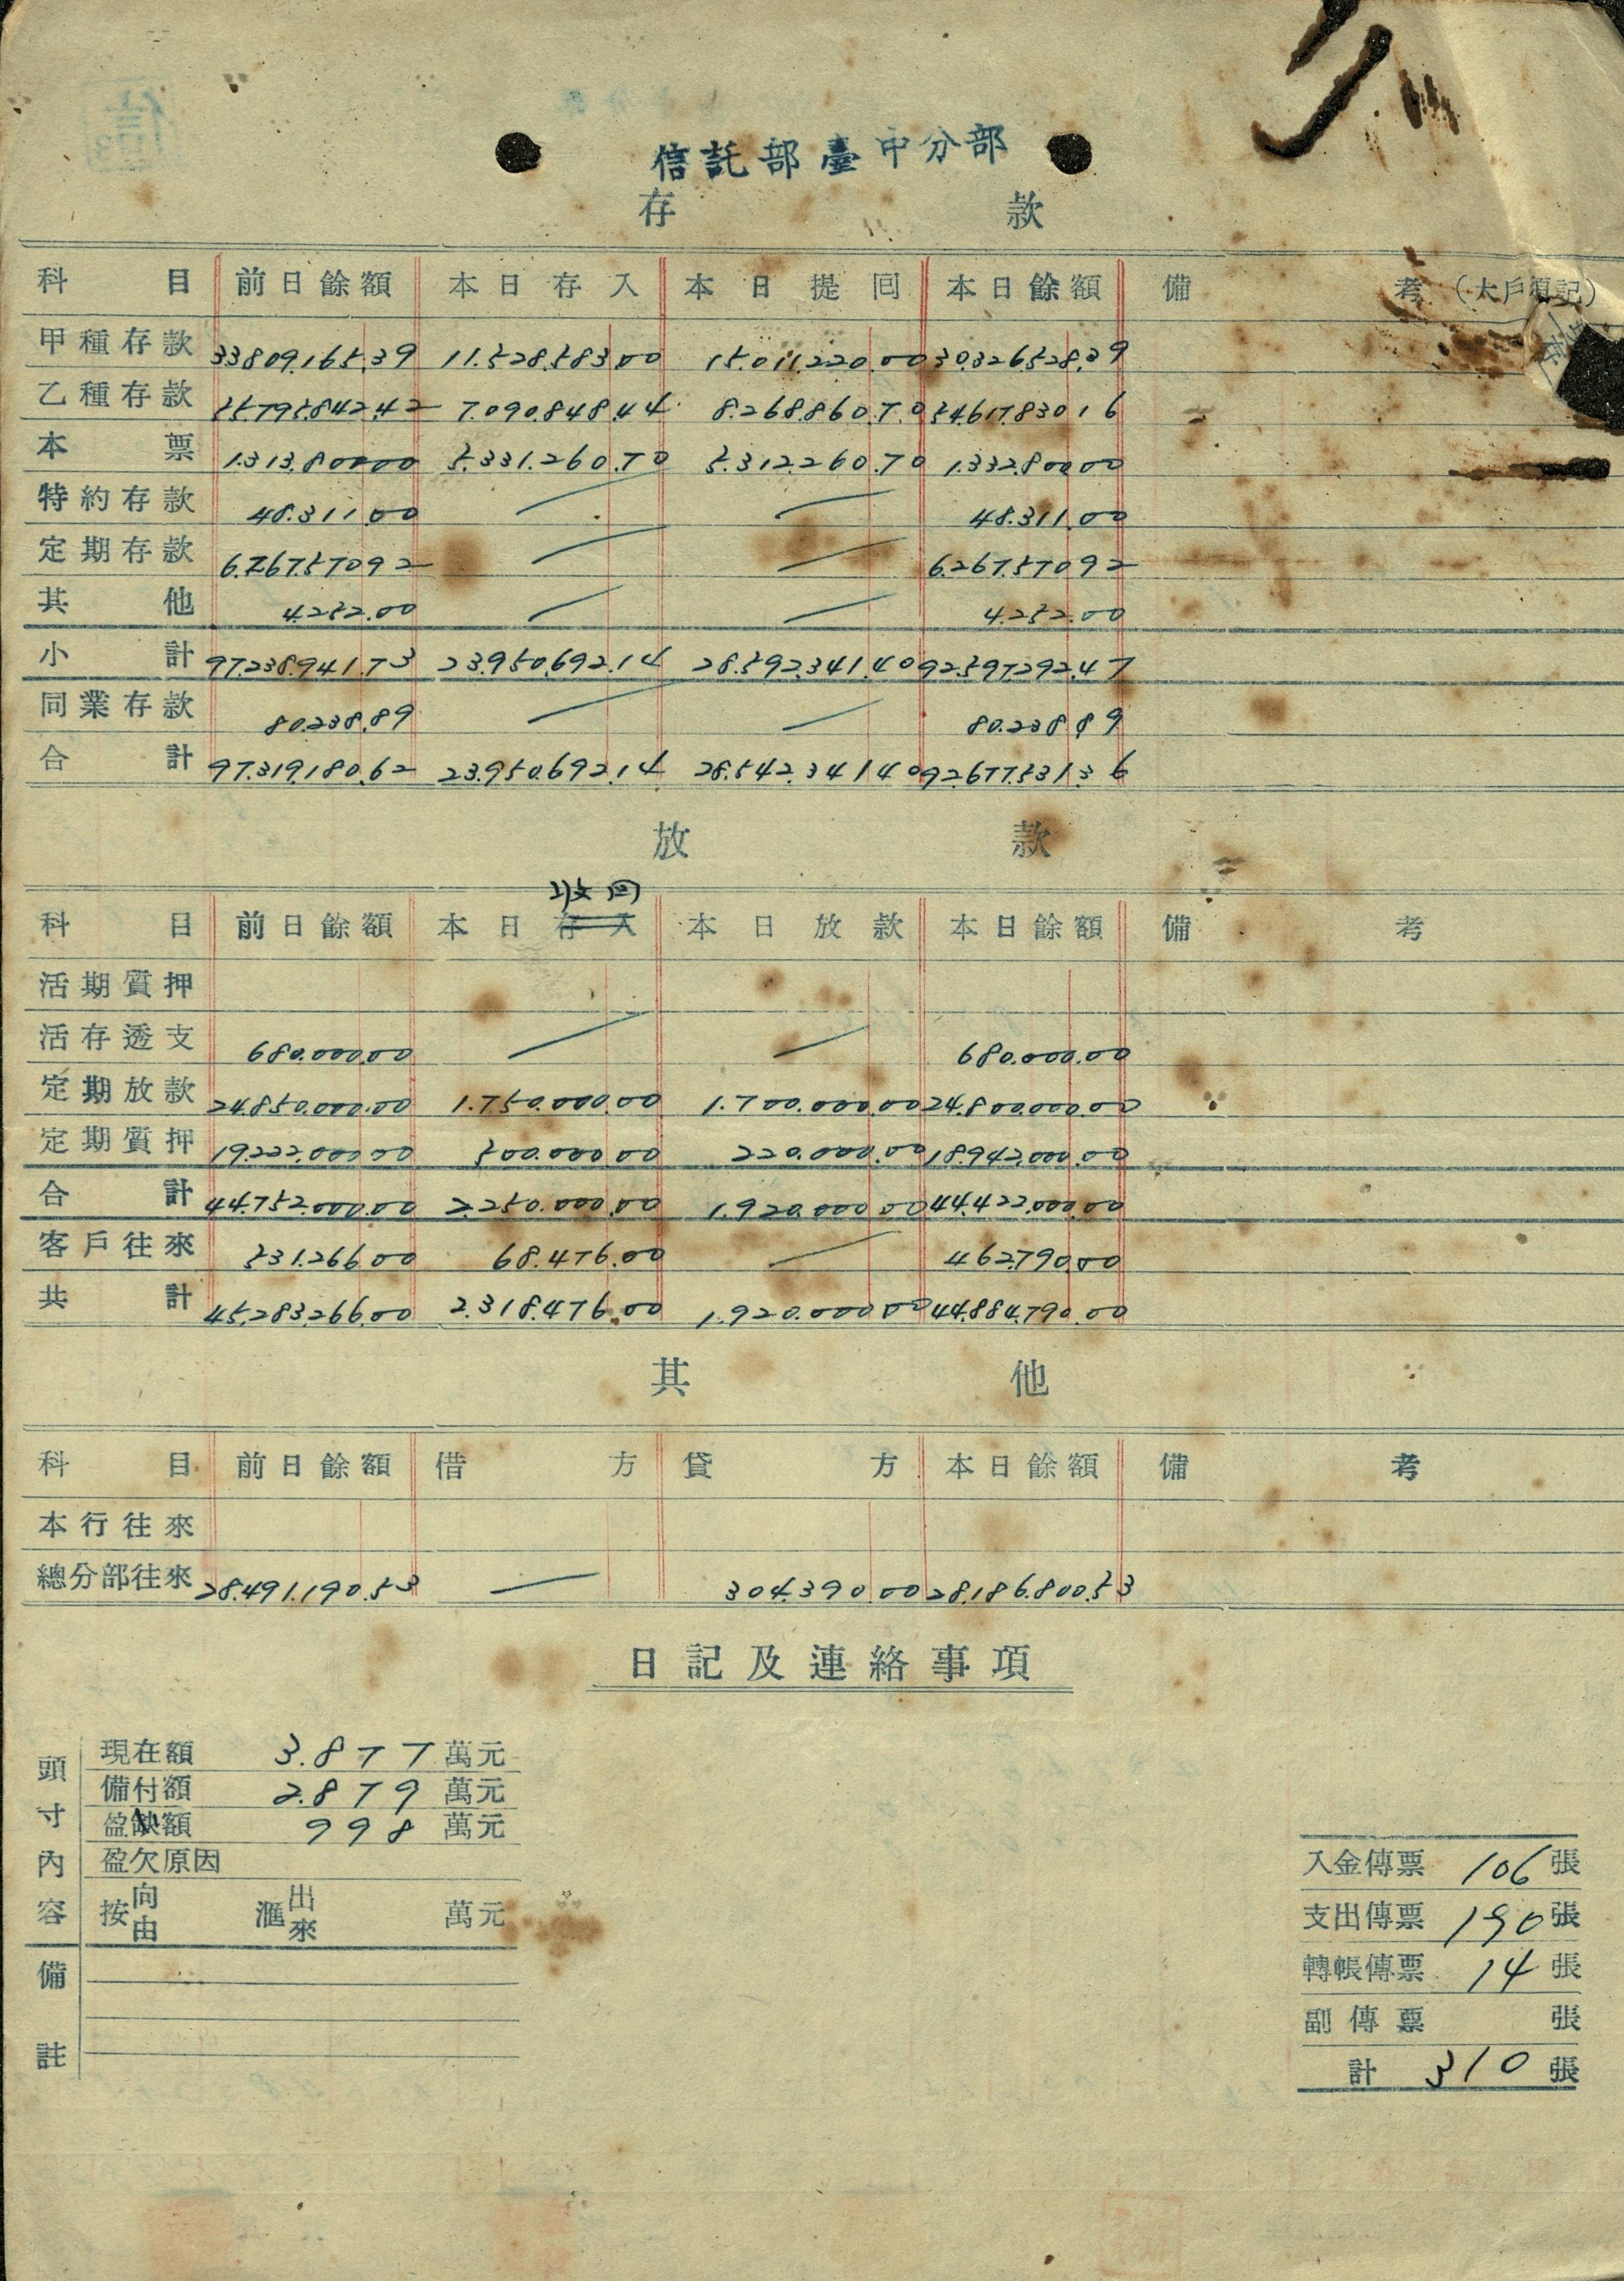 信託部臺中分部
存 款
科目 前日餘額 本日存入 本日提回 本日餘額 備考(大戶須記)
甲種存款 33.809.165.39 11.528.583.00 15.011.220.00 30.326.528.39
乙種存款 55.795.842.42 7.090.848.44 8.268.860.70 54.617.830.16
本票 1.313.800.00 5.331.260.70 5.312.260.70 1.332.800.00
特約存款 48.311.00 — — 48.311.00
定期存款 6.267.570.92 — — 6.267.570.92
其他 4.252.00 — — 4.252.00
小計 97.238.941.73 23.950.692.14 28.592.341.40 92.597.292.47
同業存款 80.238.89 — — 80.238.89
合計 97.319.180.62 23.950.692.14 28.542.341.40 92.677.531.36
放 款
收回
科目 前日餘額 本日存入 本日放款 本日餘額 備考
活期質押
活存透支 680.000.00 — — 680.000.00
定期放款 24.850.000.00 1.750.000.00 1.700.000.00 24.800.000.00
定期質押 19.222.000.00 500.000.00 220.000.00 18.942.000.00
合計 44.752.000.00 2.250.000.00 1.920.000.00 44.422.000.00
客戶往來 531.266.00 68.476.00 — 462.790.00
共計 45.283.266.00 2.318.476.00 1.920.000.00 44.884.790.00
其 他
科目 前日餘額 借方 貸方 本日餘額 備考
本行往來
總分部往來 28.491.190.53 — 304.390.00 28.186.800.53
日記及連絡事項
頭寸內容
現在額 3.877 萬元
備付額 2.879 萬元
盈缺額 998 萬元
盈欠原因
按向由 滙出來 萬元
備註
入金傳票 106 張
支出傳票 190 張
轉帳傳票 14 張
副傳票 張
計 310 張